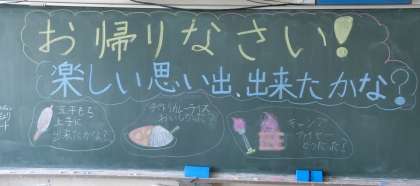 お帰りなさい!
楽しい思い出、出来たかな?
五平もち
上手に
出来たかな?
手作りカレーライス
おいしかった?
キャンプ
ファイヤー
どうだった?